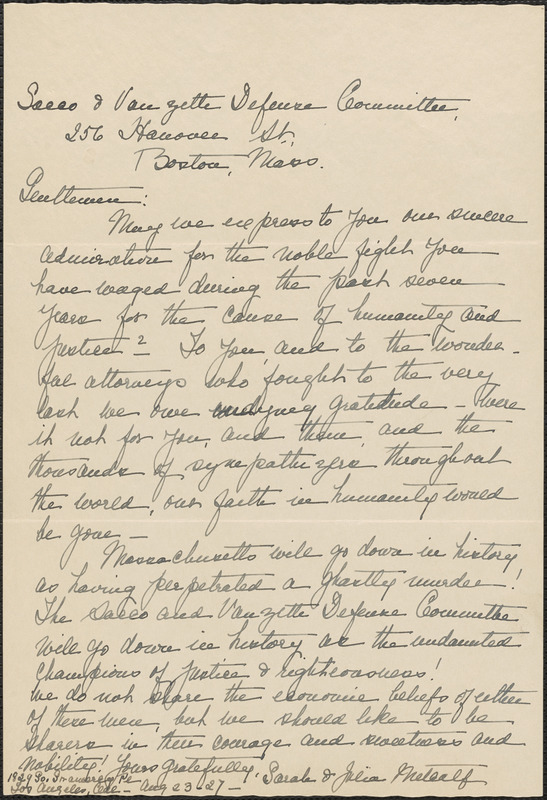 Sacco & Vanzetti Defense Committee,
256 Hanover St.,
Boston, Mass.
Gentlemen:
May we express to you our sincere
admiration for the noble fight you
have waged during the past seven
years for the cause of humanity and
justice? To you, and to the wonder-
ful attorneys who fought to the very
last we owe undying gratitude - Were
it not for you, and them, and the
thousands of sympathizers throughout
the world, our faith in humanity would
be gone -
Massachusetts will go down in history
as having perpetrated a ghastly murder!
The Sacco and Vanzetti Defense Committee
will go down in history as the undaunted
champions of justice & righteousness!
We do not share the economic beliefs of either
of these men, but we should like to be
sharers in their courage and sweetness and
nobility! Yours gratefully, Sarah & Julia Metcalf
1929 So. Pl.
Los Angeles, Cal - Aug 23-27-